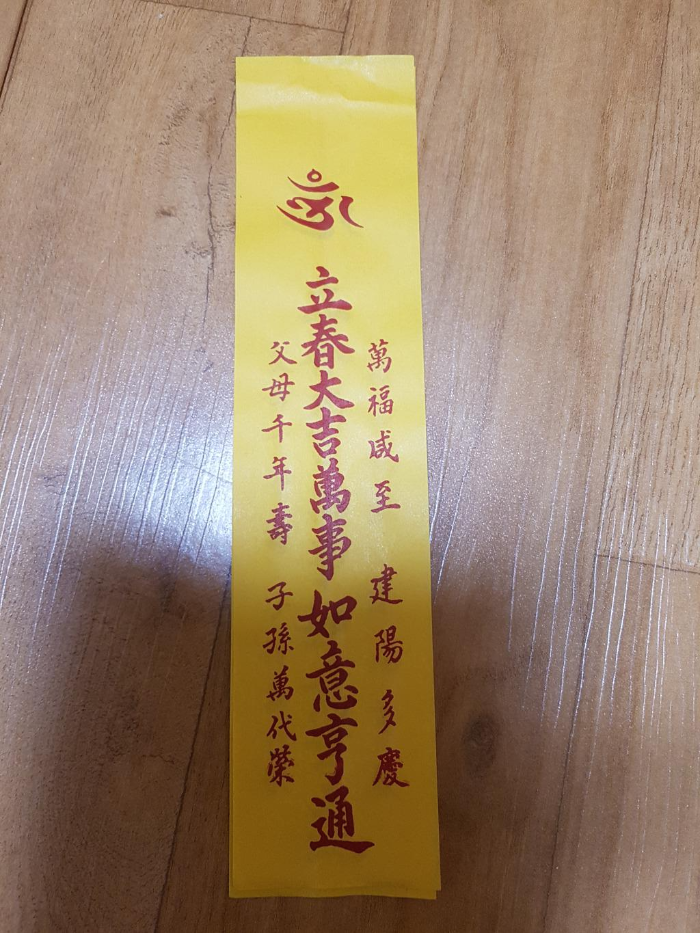 萬福咸至 建陽多慶
立春大吉萬事如意亨通
父母千年壽 子孫萬代榮